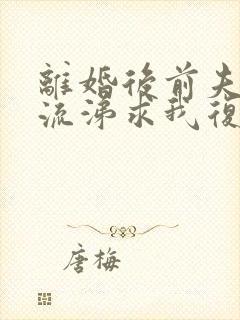 離婚後前夫
流涕求我復
唐梅